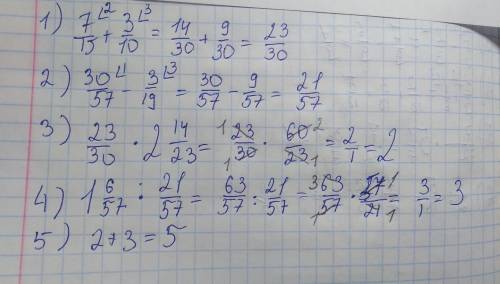 1) 7/15 ⌞2 + 3/10 ⌞3 = 14/30 + 9/30 = 23/30
2) 30/57 ⌞1 - 3/19 ⌞3 = 30/57 - 9/57 = 21/57
3) 23/30 · 2 14/23 = 1 23/30 1 · 60 2/23 1 = 2/1 = 2
4) 1 6/57 : 21/57 = 63/57 : 21/57 = 3 63/57 1 · 57 1/21 1 = 3/1 = 3
5) 2+3=5